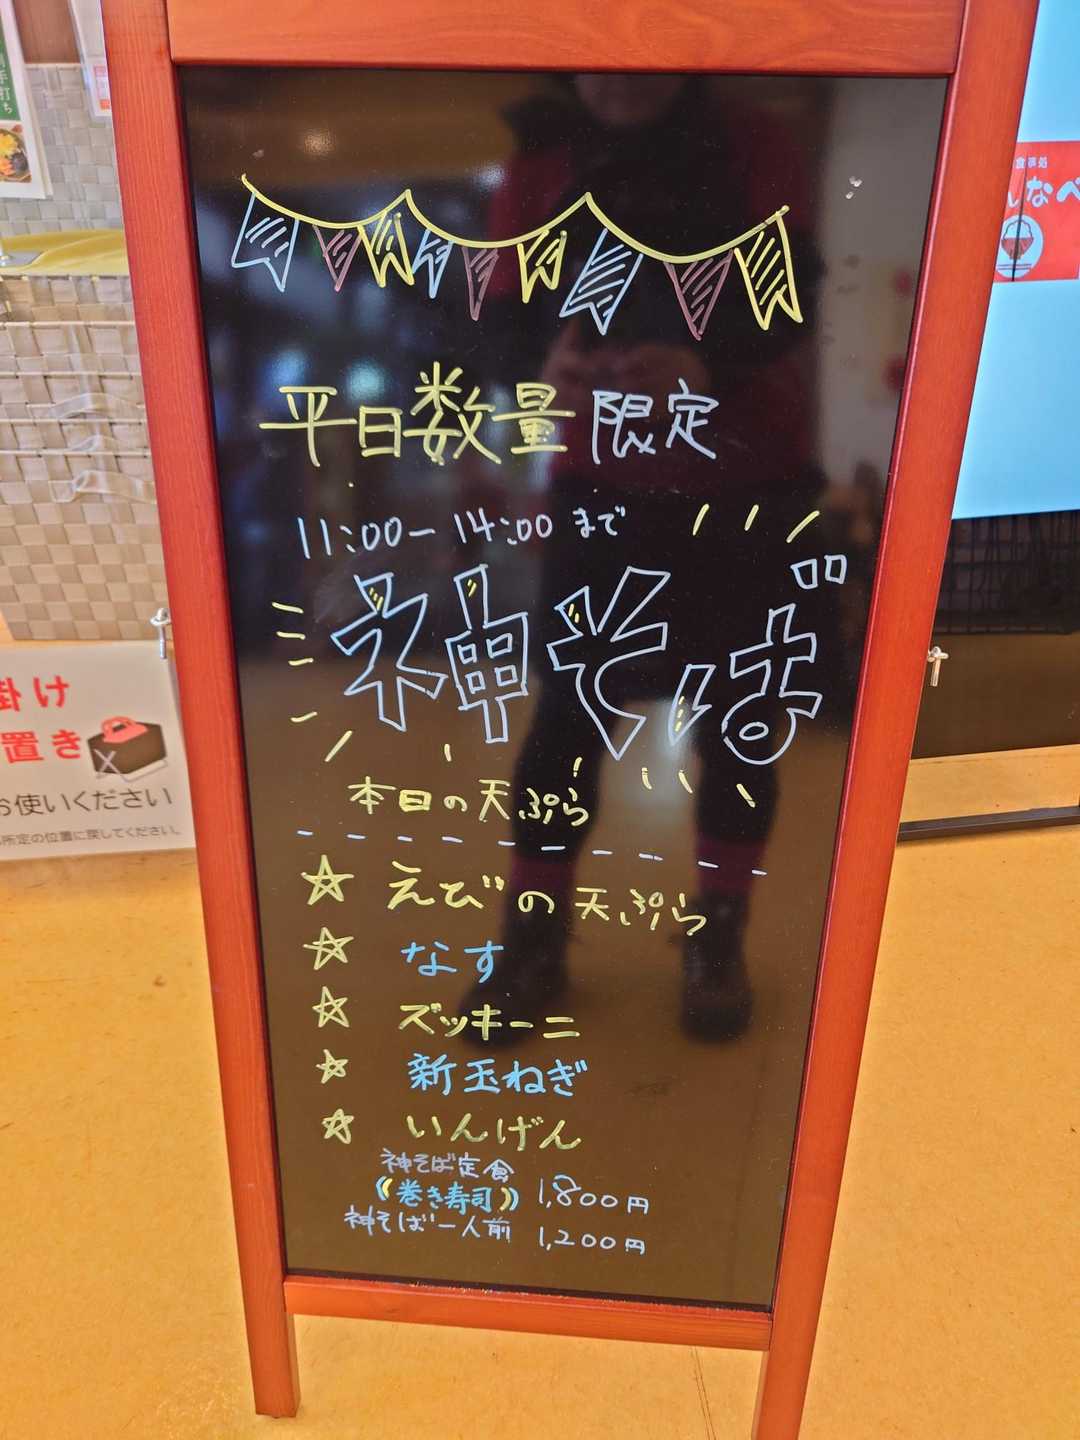 平日数量限定
11:00-14:00 まで
神そば
本日の天ぷら
☆ えびの天ぷら
☆ なす
☆ ズッキーニ
☆ 新玉ねぎ
☆ いんげん
神そば定食
《巻き寿司》 1,800円
神そば一人前 1,200円
掛け
置き
お使いください
所定の位置に戻してください。
手打ち
食事処
いなべ